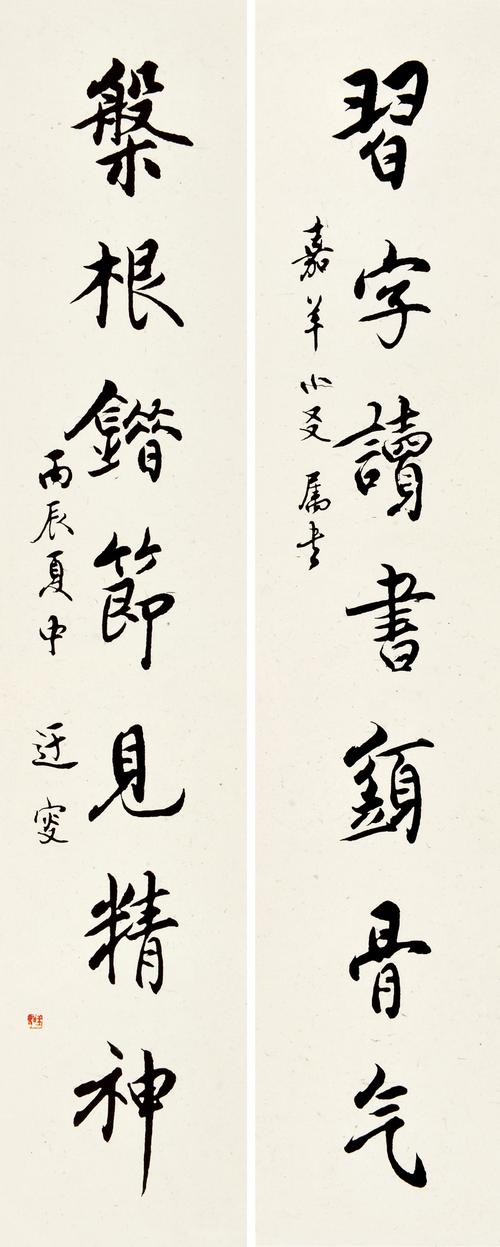 習字讀書骨气
嘉羊小友 属书
槃根錯節見精神
丙辰夏中 迂叟